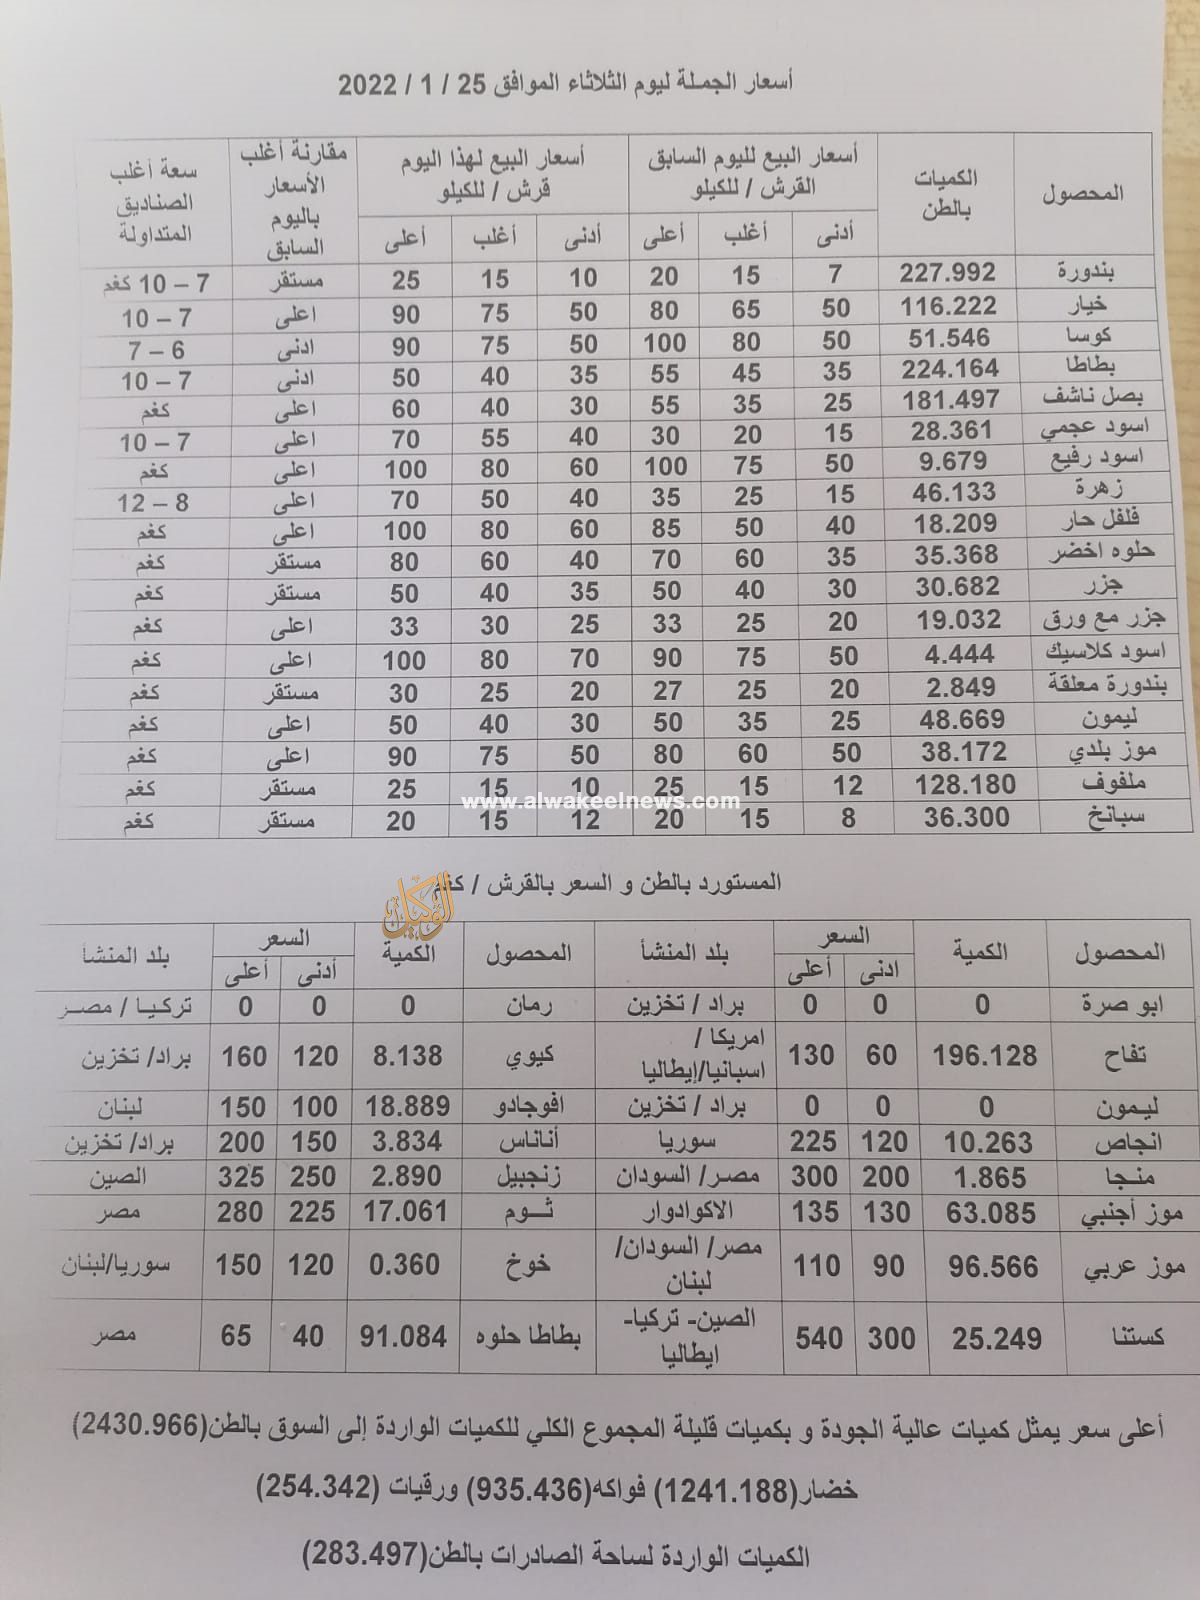 أسعار الجملة ليوم الثلاثاء الموافق 25 / 1 / 2022
المحصول | الكميات بالطن | أسعار البيع لليوم السابق القرش / للكيلو | أسعار البيع لهذا اليوم قرش / للكيلو | مقارنة أغلب الأسعار باليوم السابق | سعة أغلب الصناديق المتداولة
أدنى | أغلب | أعلى | أدنى | أغلب | أعلى
بندورة | 227.992 | 7 | 15 | 20 | 10 | 15 | 25 | مستقر | 7 – 10 كغم
خيار | 116.222 | 50 | 65 | 80 | 50 | 75 | 90 | اعلى | 7 – 10
كوسا | 51.546 | 50 | 80 | 100 | 50 | 75 | 90 | ادنى | 6 – 7
بطاطا | 224.164 | 35 | 45 | 55 | 35 | 40 | 50 | ادنى | 7 – 10
بصل ناشف | 181.497 | 25 | 35 | 55 | 30 | 40 | 60 | اعلى | كغم
اسود عجمي | 28.361 | 15 | 20 | 30 | 40 | 55 | 70 | اعلى | 7 – 10
اسود رفيع | 9.679 | 50 | 75 | 100 | 60 | 80 | 100 | اعلى | كغم
زهرة | 46.133 | 15 | 25 | 35 | 40 | 50 | 70 | اعلى | 8 – 12
فلفل حار | 18.209 | 40 | 50 | 85 | 60 | 80 | 100 | اعلى | كغم
حلوه اخضر | 35.368 | 35 | 60 | 70 | 40 | 60 | 80 | مستقر | كغم
جزر | 30.682 | 30 | 40 | 50 | 35 | 40 | 50 | مستقر | كغم
جزر مع ورق | 19.032 | 20 | 25 | 33 | 25 | 30 | 33 | اعلى | كغم
اسود كلاسيك | 4.444 | 50 | 75 | 90 | 70 | 80 | 100 | اعلى | كغم
بندورة معلقة | 2.849 | 20 | 25 | 27 | 20 | 25 | 30 | مستقر | كغم
ليمون | 48.669 | 25 | 35 | 50 | 30 | 40 | 50 | اعلى | كغم
موز بلدي | 38.172 | 50 | 60 | 80 | 50 | 75 | 90 | اعلى | كغم
ملفوف | 128.180 | 12 | 15 | 25 | 10 | 15 | 25 | مستقر | كغم
www.alwakeelnews.com
سبانخ | 36.300 | 8 | 15 | 20 | 12 | 15 | 20 | مستقر | كغم
المستورد بالطن و السعر بالقرش / كغم
الوكيل
المحصول | الكمية | السعر | بلد المنشأ | المحصول | الكمية | السعر | بلد المنشأ
ادنى | أعلى | أدنى | أعلى
ابو صرة | 0 | 0 | 0 | براد / تخزين | رمان | 0 | 0 | 0 | تركيا / مصر
تفاح | 196.128 | 60 | 130 | امريكا / اسبانيا/إيطاليا | كيوي | 8.138 | 120 | 160 | براد/ تخزين
ليمون | 0 | 0 | 0 | براد / تخزين | افوجادو | 18.889 | 100 | 150 | لبنان
انجاص | 10.263 | 120 | 225 | سوريا | أناناس | 3.834 | 150 | 200 | براد/ تخزين
منجا | 1.865 | 200 | 300 | مصر/ السودان | زنجبيل | 2.890 | 250 | 325 | الصين
موز أجنبي | 63.085 | 130 | 135 | الاكوادوار | ثوم | 17.061 | 225 | 280 | مصر
موز عربي | 96.566 | 90 | 110 | مصر/ السودان/ لبنان | خوخ | 0.360 | 120 | 150 | سوريا/لبنان
كستنا | 25.249 | 300 | 540 | الصين- تركيا- ايطاليا | بطاطا حلوه | 91.084 | 40 | 65 | مصر
أعلى سعر يمثل كميات عالية الجودة و بكميات قليلة المجموع الكلي للكميات الواردة إلى السوق بالطن(2430.966)
خضار(1241.188) فواكه(935.436) ورقيات (254.342)
الكميات الواردة لساحة الصادرات بالطن(283.497)